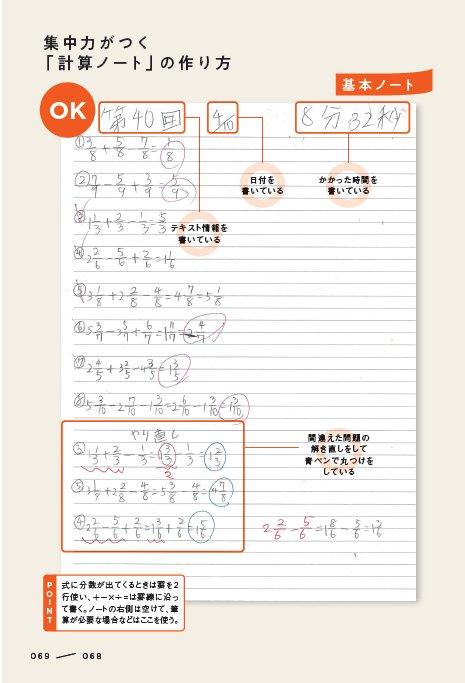 集中力がつく
「計算ノート」の作り方
基本ノート
OK
第40回
4/10
8分32秒
日付を
書いている
かかった時間を
書いている
テキスト情報を
書いている
① 3/8 + 5/8 - 7/8 = 1/8
② 7/9 - 5/9 + 3/9 = 5/9
③ 1 1/3 + 2/3 - 1/3 = 5/3
④ 2 2/6 - 5/6 + 2/6 = 1 1/6
⑤ 3 1/8 + 2 2/8 - 4/8 = 4 7/8 = 5 1/8
⑦ 2 4/5 + 3 2/5 - 4 3/5 = 1 3/5
⑧ 5 3/10 - 2 7/10 - 1 3/10 = 2 6/10 - 1 3/10 = 1 3/10
やり直し
③ 1 1/3 + 2/3 - 1/3 = 1 3/3 - 1/3 = 1 2/3
⑤ 3 1/8 + 2 2/8 - 4/8 = 5 3/8 - 4/8 = 4 7/8
④ 2 2/6 - 5/6 + 2/6 = 1 3/6 + 2/6 = 1 5/6
2 2/6 - 5/6 = 1 8/6 - 5/6 = 1 3/6
間違えた問題の
解き直しをして
青ペンで丸つけを
している
POINT
式に分数が出てくるときは罫を2
行使い、+−×÷=は罫線に沿っ
て書く。ノートの右側は空けて、筆
算が必要な場合などはここを使う。
069 068